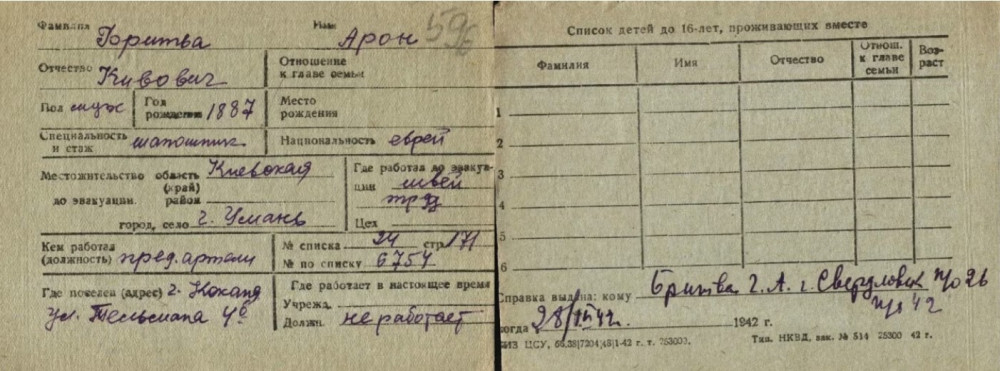 Фамилия Горитва Имя Арон 596
Отчество Кивович Отношение к главе семьи
Пол муж Год рождения 1887 Место рождения
Специальность и стаж шапошник Национальность еврей
Местожительство область Киевская
(край)
до эвакуации. район
город, село г. Умань
Где работал до эвакуации швей
труд
Цех
Кем работал (должность) пред. артели
№ списка 24 стр. 171
№ по списку 6754
Где поселен (адрес) г. Коканд
ул. Тельмана
Где работает в настоящее время
Учрежд.
Должн. не работает
Список детей до 16-лет, проживающих вместе
Фамилия Имя Отчество Отнош. к главе семьи Возраст
1
2
3
4
5
6
Справка выдана: кому Бритва Г. А. г. Свердловск
когда 28/ 1942 г.
ЦСУ,
Тип. НКВД, зак. № 514 25300 42 г.